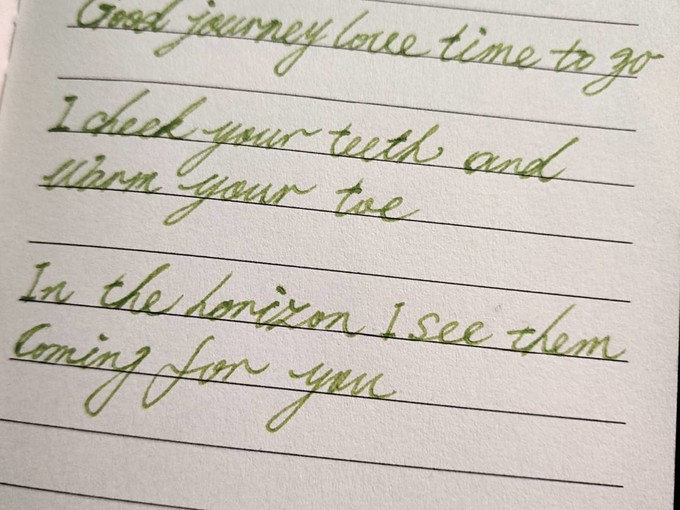 Good journey love time to go
I check your teeth and
warm your toe
In the horizon I see them
Coming for you